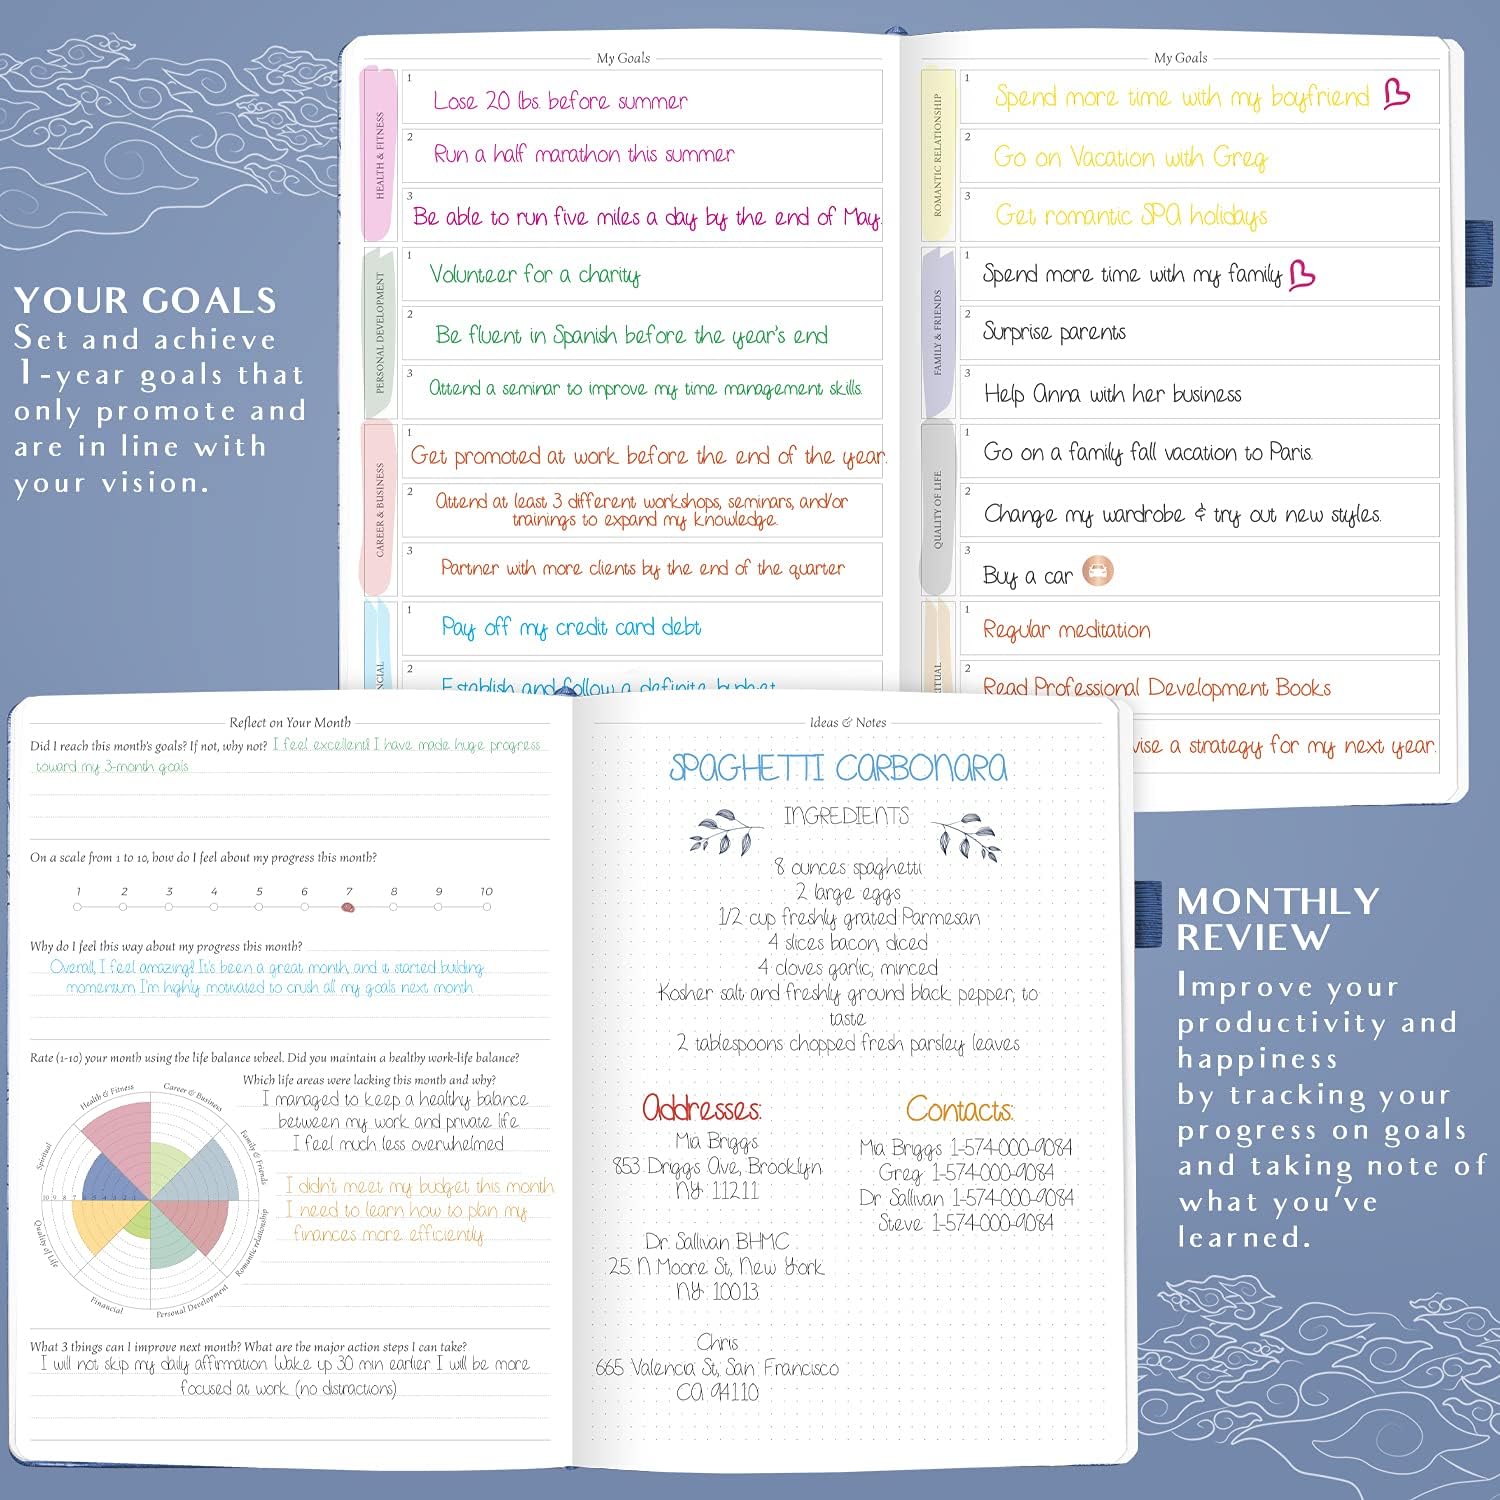 YOUR GOALS
Set and achieve
1-year goals that
only promote and
are in line with
your vision.
My Goals
HEALTH & FITNESS
1
Lose 20 lbs. before summer
2
Run a half marathon this summer
3
Be able to run five miles a day by the end of May.
PERSONAL DEVELOPMENT
1
Volunteer for a charity
2
Be fluent in Spanish before the year's end
3
Attend a seminar to improve my time management skills.
CAREER & BUSINESS
1
Get promoted at work before the end of the year.
2
Attend at least 3 different workshops, seminars, and/or
trainings to expand my knowledge.
3
Partner with more clients by the end of the quarter
NCIAL
1
Pay off my credit card debt
2
Establish and follow a definite budget
My Goals
ROMANTIC RELATIONSHIP
1
Spend more time with my boyfriend
2
Go on Vacation with Greg
3
Get romantic SPA holidays
FAMILY & FRIENDS
1
Spend more time with my family
2
Surprise parents
3
Help Anna with her business
QUALITY OF LIFE
1
Go on a family fall vacation to Paris.
2
Change my wardrobe & try out new styles.
3
Buy a car
RITUAL
1
Regular meditation
2
Read Professional Development Books
vise a strategy for my next year.
Reflect on Your Month
Did I reach this month's goals? If not, why not? I feel excellent! I have made huge progress
toward my 3-month goals
On a scale from 1 to 10, how do I feel about my progress this month?
1 2 3 4 5 6 7 8 9 10
Why do I feel this way about my progress this month?
Overall, I feel amazing! It's been a great month, and it started building
momentum. I'm highly motivated to crush all my goals next month.
Rate (1-10) your month using the life balance wheel. Did you maintain a healthy work-life balance?
Health & Fitness
Career & Business
Family & Friends
Romantic relationship
Personal Development
Financial
Quality of Life
Spiritual
10 9 8 7 6 5 4 3 2 1
Which life areas were lacking this month and why?
I managed to keep a healthy balance
between my work and private life
I feel much less overwhelmed
I didn't meet my budget this month
I need to learn how to plan my
finances more efficiently
What 3 things can I improve next month? What are the major action steps I can take?
I will not skip my daily affirmation. Wake up 30 min earlier. I will be more
focused at work (no distractions)
Ideas & Notes
SPAGHETTI CARBONARA
INGREDIENTS
8 ounces spaghetti
2 large eggs
1/2 cup freshly grated Parmesan
4 slices bacon, diced
4 cloves garlic, minced
Kosher salt and freshly ground black pepper, to
taste
2 tablespoons chopped fresh parsley leaves
Addresses:
Mia Briggs
853 Driggs Ave, Brooklyn
NY 11211
Dr. Sallivan BHMC
25 N Moore St, New York
NY 10013
Chris
665 Valencia St, San Francisco
CA 94110
Contacts:
Mia Briggs 1-574-000-9084
Greg 1-574-000-9084
Dr Sallivan 1-574-000-9084
Steve 1-574-000-9084
MONTHLY
REVIEW
Improve your
productivity and
happiness
by tracking your
progress on goals
and taking note of
what you've
learned.